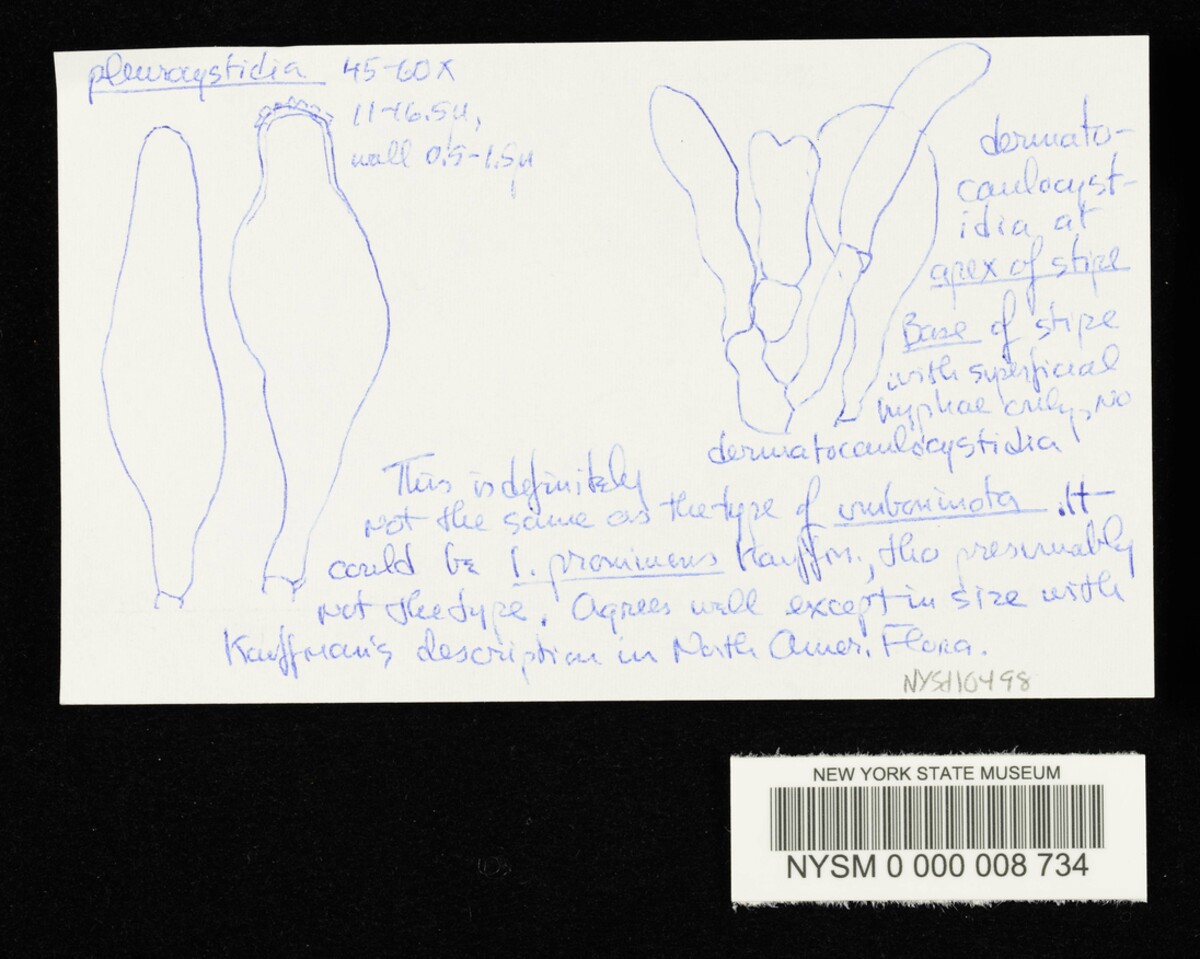 pleurocystidia 45-60 x
11-16.5µ,
wall 0.5-1.5µ
dermato-
caulocyst-
idia at
apex of stipe
Base of stipe
with superficial
hyphae only, no
dermatocaulocystidia
This is definitely
not the same as the type of umboninota. It
could be I. prominens Kauffm., tho presumably
not the type. Agrees well except in size with
Kauffman's description in North Amer. Flora.
NYSf10498
NEW YORK STATE MUSEUM
NYSM 0 000 008 734